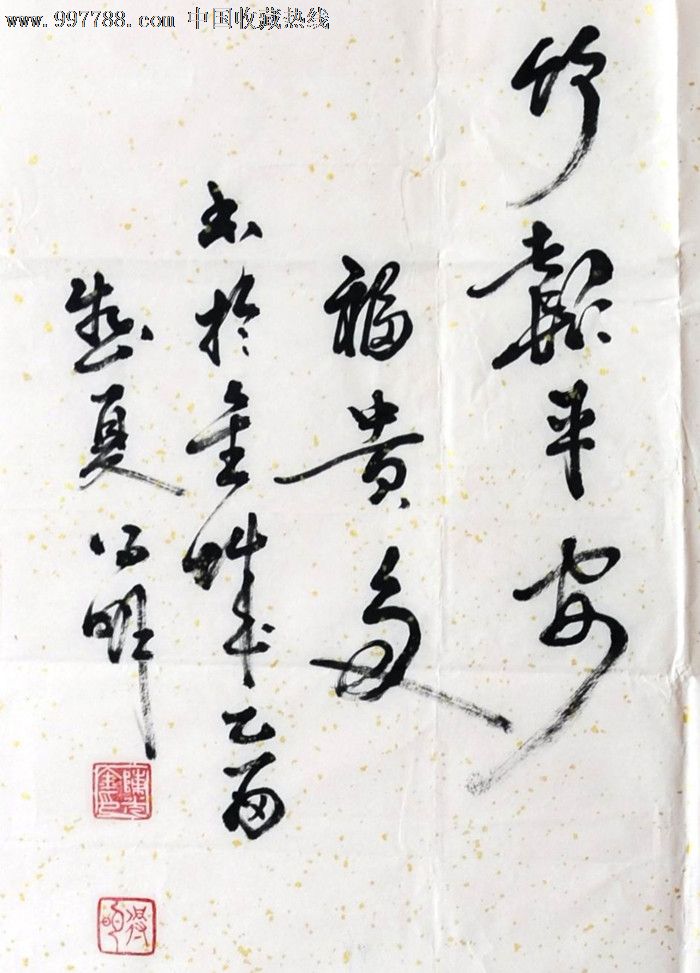 www.997788.com 中国收藏热线
竹报平安
福贵多
书於金城乙酉
盛夏
明